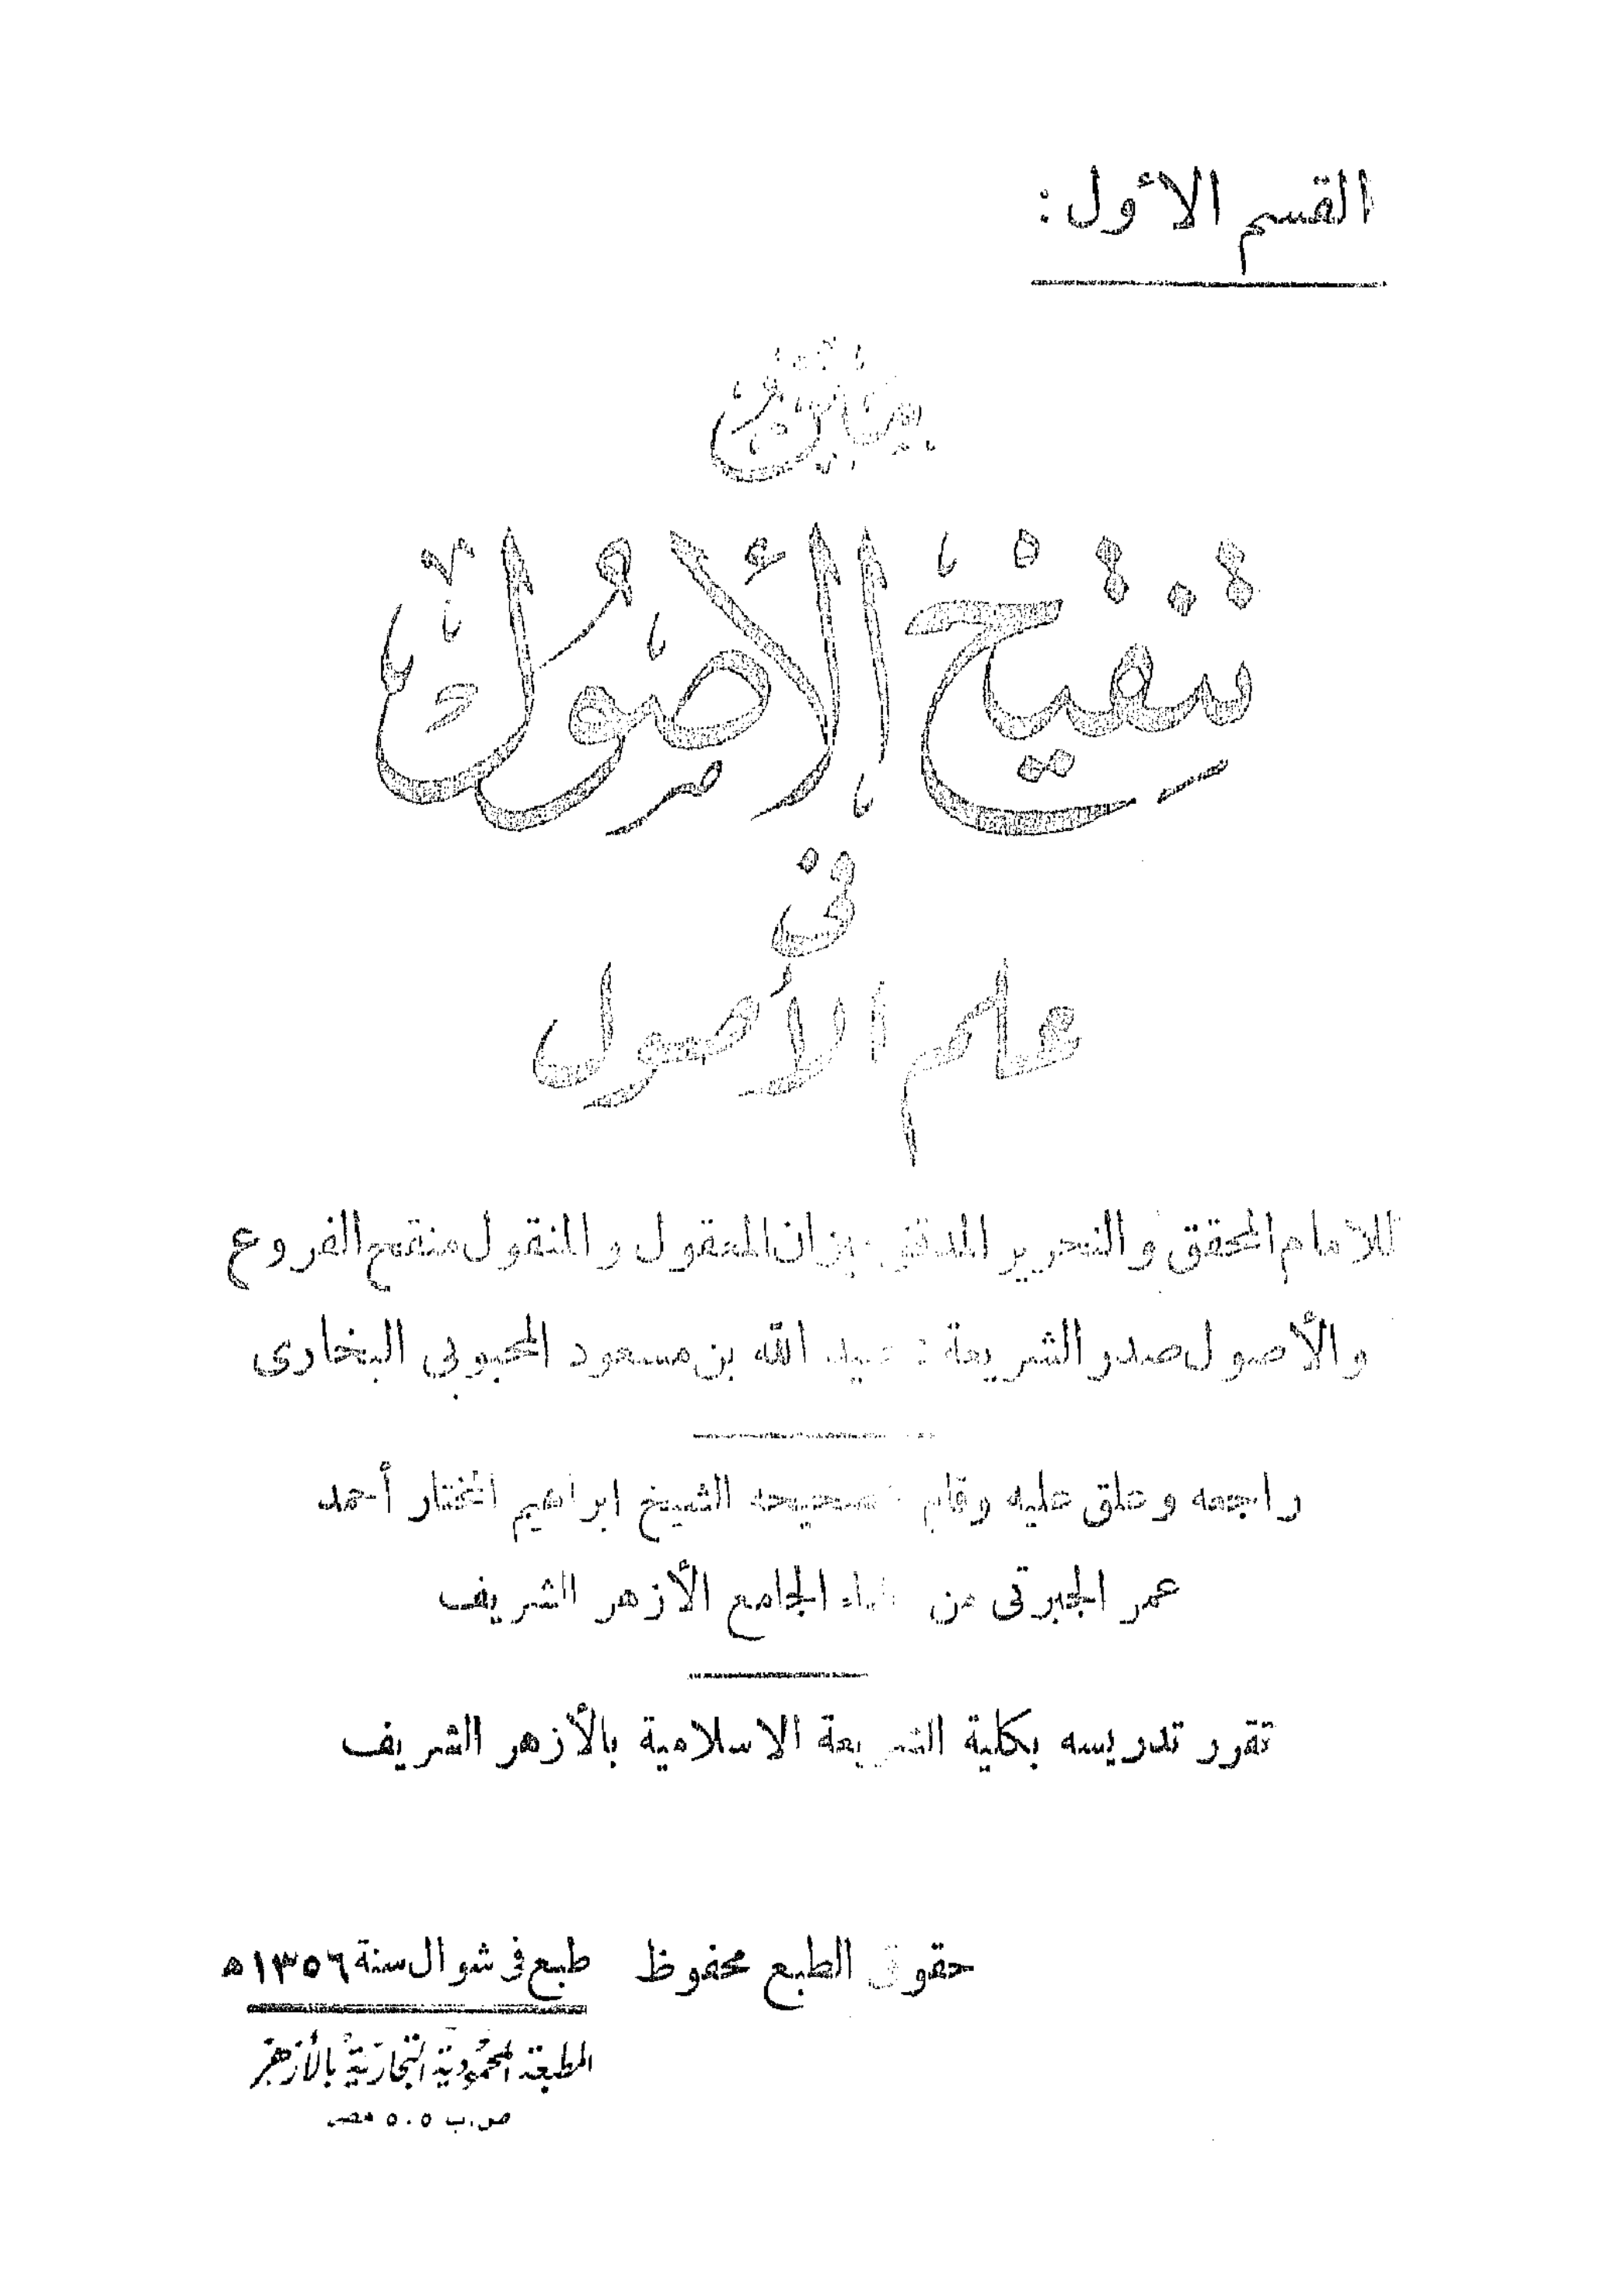 القسم الأول :
تنقيح الأصول
فى
علم الأصول
للامام المحقق والنحرير المدقق ميزان المعقول والمنقول منقح الفروع
والأصول صدر الشريعة : عبيد الله بن مسعود المحبوبى البخارى
راجعه وعلق عليه وقام بتصحيحه الشيخ ابراهيم المختار أحمد
عمر الجبرتى من علماء الجامع الأزهر الشريف
تقرر تدريسه بكلية الشريعة الاسلامية بالأزهر الشريف
حقوق الطبع محفوظ
طبع فى شوال سنة ١٣٥٦ ه
المطبعة المحمودية التجارية بالأزهر
ص.ب ٥٠٥ مصر